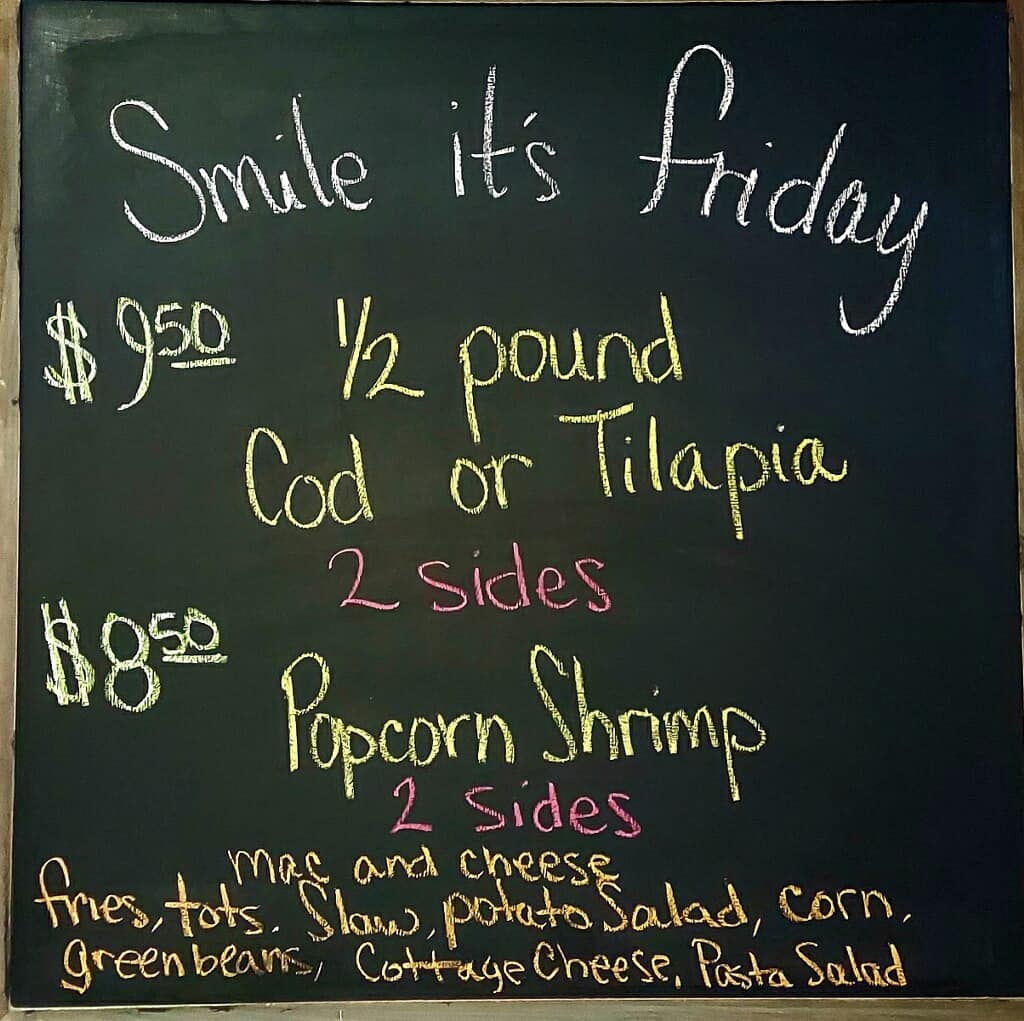 Smile it's friday
$9.50 1/2 pound
Cod or Tilapia
2 sides
$8.50
Popcorn Shrimp
2 sides
mac and cheese
fries, tots. Slaw, potato Salad, corn,
green beans, Cottage Cheese, Pasta Salad